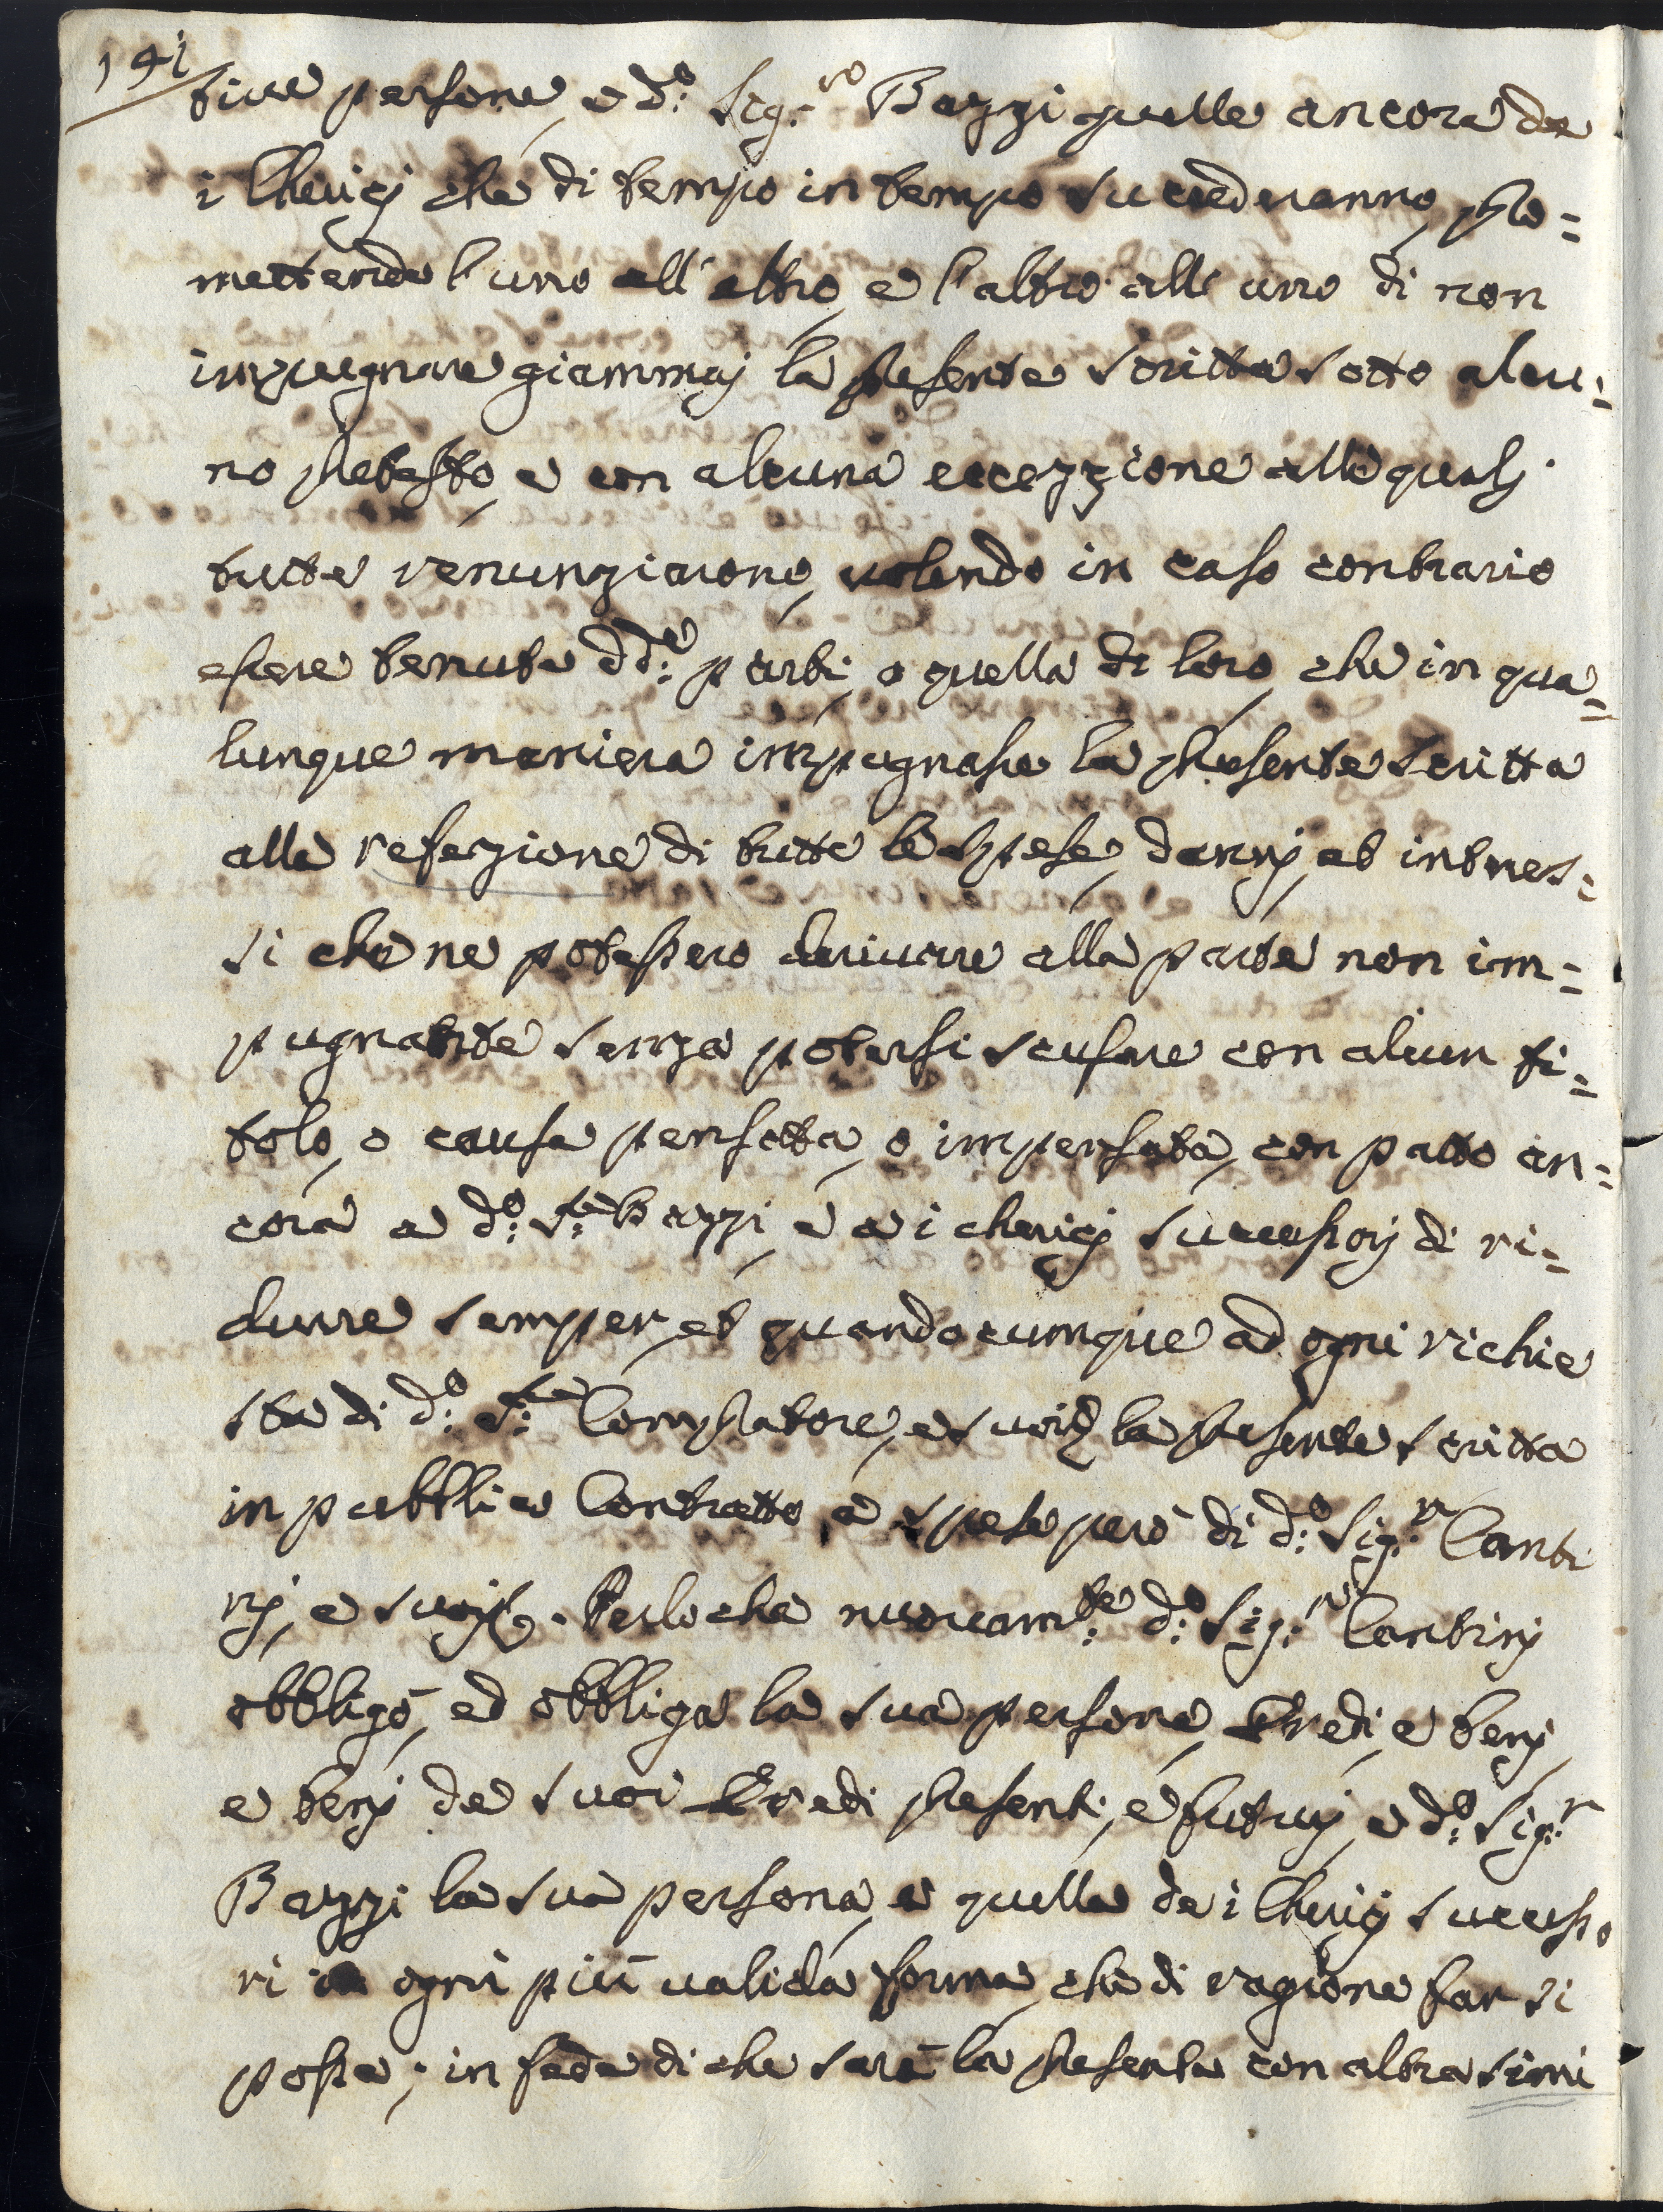 141
tive persone, e d.º Sig.re Bazzi quelle ancora de
i Cherici che di tempo in tempo succederanno, pro=
mettendo l'uno all'altro, e l'altro all'uno di non
impugnare giammai la presente scritta sotto alcu=
no pretesto, e con alcuna eccezzione alle quali
tutte renunziarono, volendo in caso contrario
essere tenute dd.e parti, o quella di loro, che in qua=
lunque maniera impugnasse la presente scritta
alla refezione di tutte le spese, danni, ed interes=
si che ne potessero derivare alla parte non im=
pugnante senza potersi scusare con alcun ti=
tolo, o causa pensata, o impensata, con patto an=
cora a d.º S.re Bazzi, e a i cherici successori di ri=
durre semper, et quandocumque ad ogni richie
sta di d.º S.re Compratore, e suoi la presente scritta
in pubblico Contratto, a spese però di d.º Sig.r Canti
ni, e suoi. Perloche nuovam.te d.º Sig.r Cantini
obbligò, ed obbliga la sua persona, Eredi, e beni,
e beni de suoi Eredi presenti, e futuri, e d.º Sig.r
Bazzi la sua persona, e quella de i Cherici successo
ri in ogni più valida forma, che di ragione far si
possa; in fede di che sarà la presente con altra simi